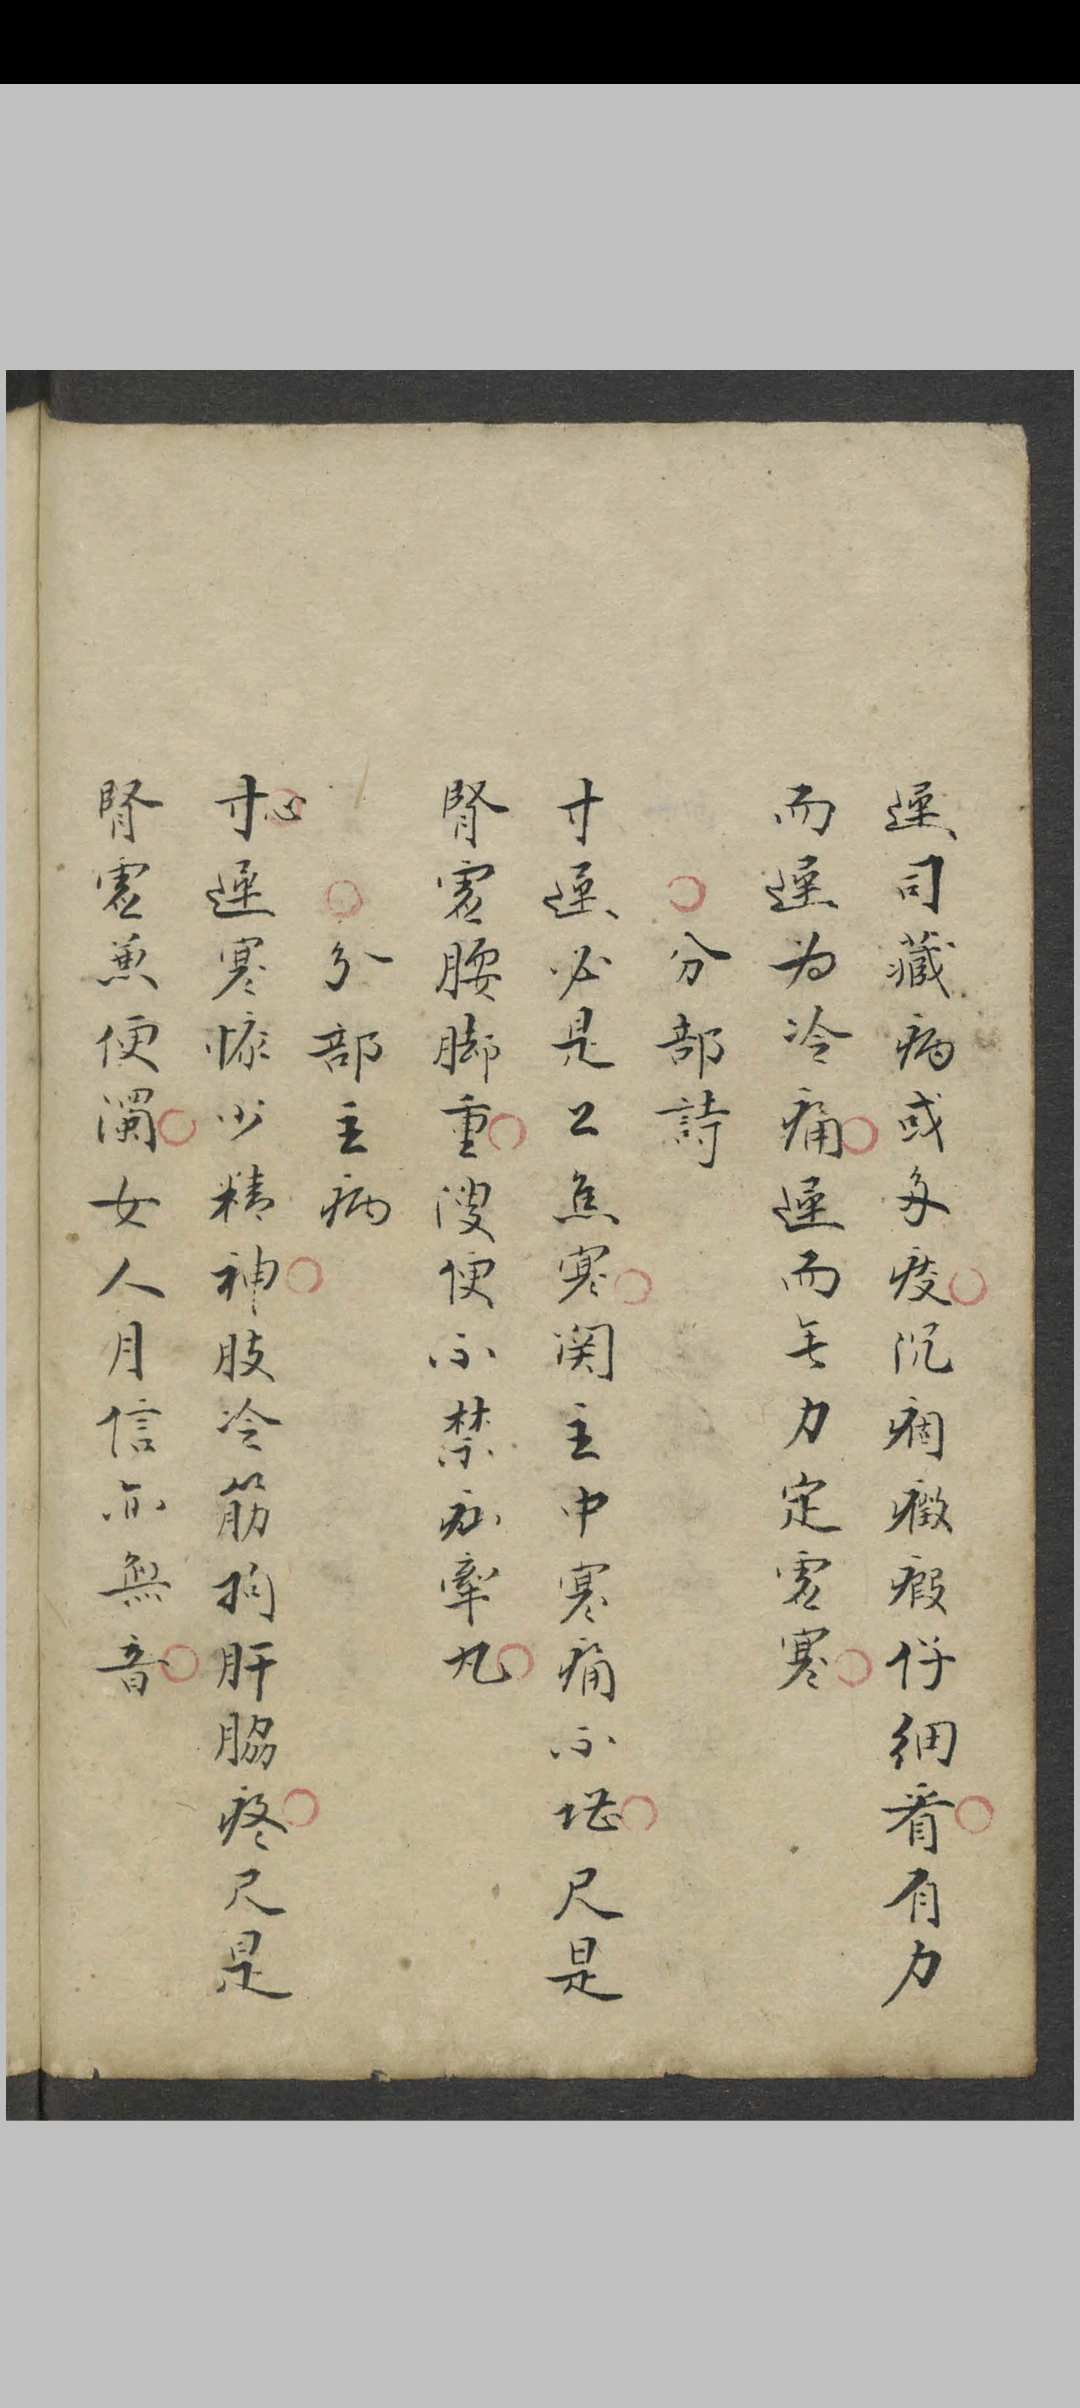 遲司藏病或多痰沉痼癥瘕仔細看有力
而遲为冷痛遲而无力定虚寒
分部詩
寸遲必是上焦寒関主中寒痛不堪尺是
腎虚腰脚重溲便不禁疝牽丸
分部主病
寸心遲寒慘少精神肢冷筋拘肝脇疼尺是
腎虚兼便濁女人月信亦無音